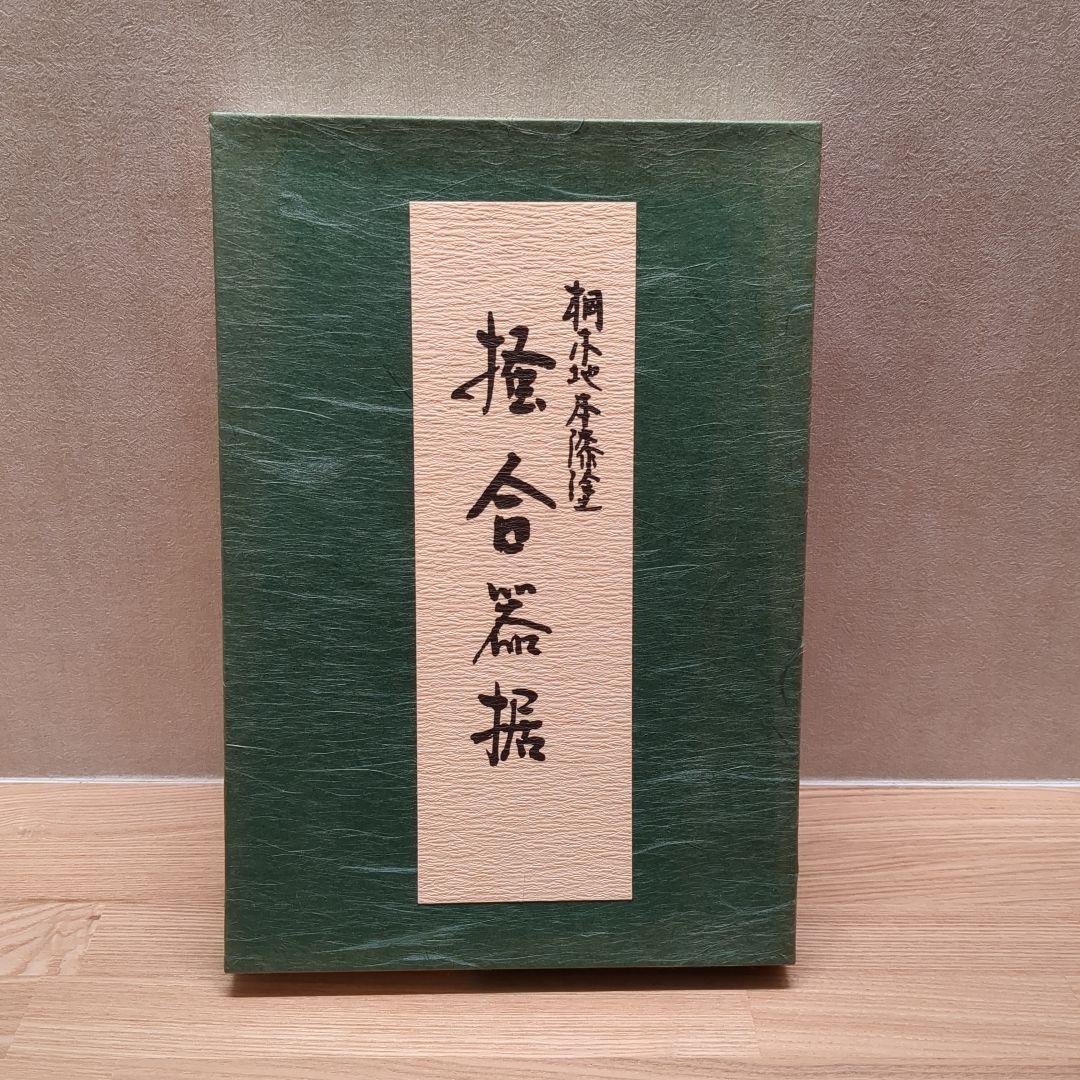 桐木地本漆塗
掻合器据